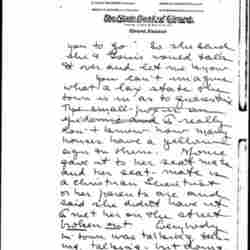 The State Bank of Girard,
Girard, Kansas
you to go." So she said
she & Louis would talk
it over and let me know
You can't imagine
what a lax state the
town is in as to quarantine
The small
epidemic and I really
don't know how many
houses have a yellow
sign on them.
gave it to her seat mate
and her seat-mate is
a Christian Scientist
or her parents are and
said she didn't have it
I met her on the street
broken out.
in town was talking to
me, talking - but